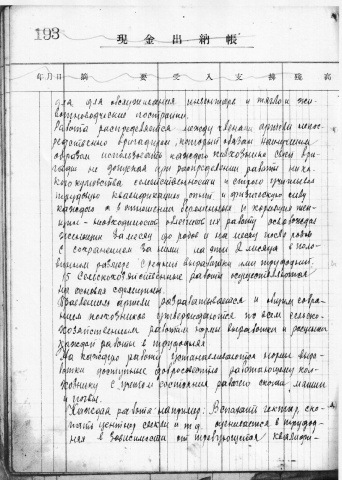 193
現金出納帳
年 月 日 摘要 受入 支拂 殘高
два для обслуживания инвентаря и тягло и жи-
вотноводческие постройки.
Работа распределяется между членами артели непос-
редственно бригадиром, который обязан наилучшим
образом использовать каждого колхозника своей бри-
гады не допуская при распределении работы ника-
кого кумовства семейственности и строго учитывая
трудовую квалификацию опыт и физическую силу
каждого а в отношении беременных и кормящих жен-
щин - необходимость облегчения работы освобождая
женщин за месяц до родов и на месяц после родов
с сохранением за ними на эти 2 месяца в поло-
винном размере средней выработки ими трудодней.
15 Сельскохозяйственные работы осуществляются
на основах сдельщины.
Правлением артели разрабатывается и общим собра-
нием колхозников утверждаются по всем сельско-
хозяйственным работам нормы выработки и расценка
каждой работы в трудоднях
На каждую работу устанавливаются нормы выра-
ботки доступные добросовестно работающему кол-
хознику с учетом состояния рабочего скота, машин
и почвы.
Каждая работа например: Вспахать гектар, ско-
пать центнер свеклы и т.д. оценивается в трудод-
нях в зависимости от требующейся квалифи-